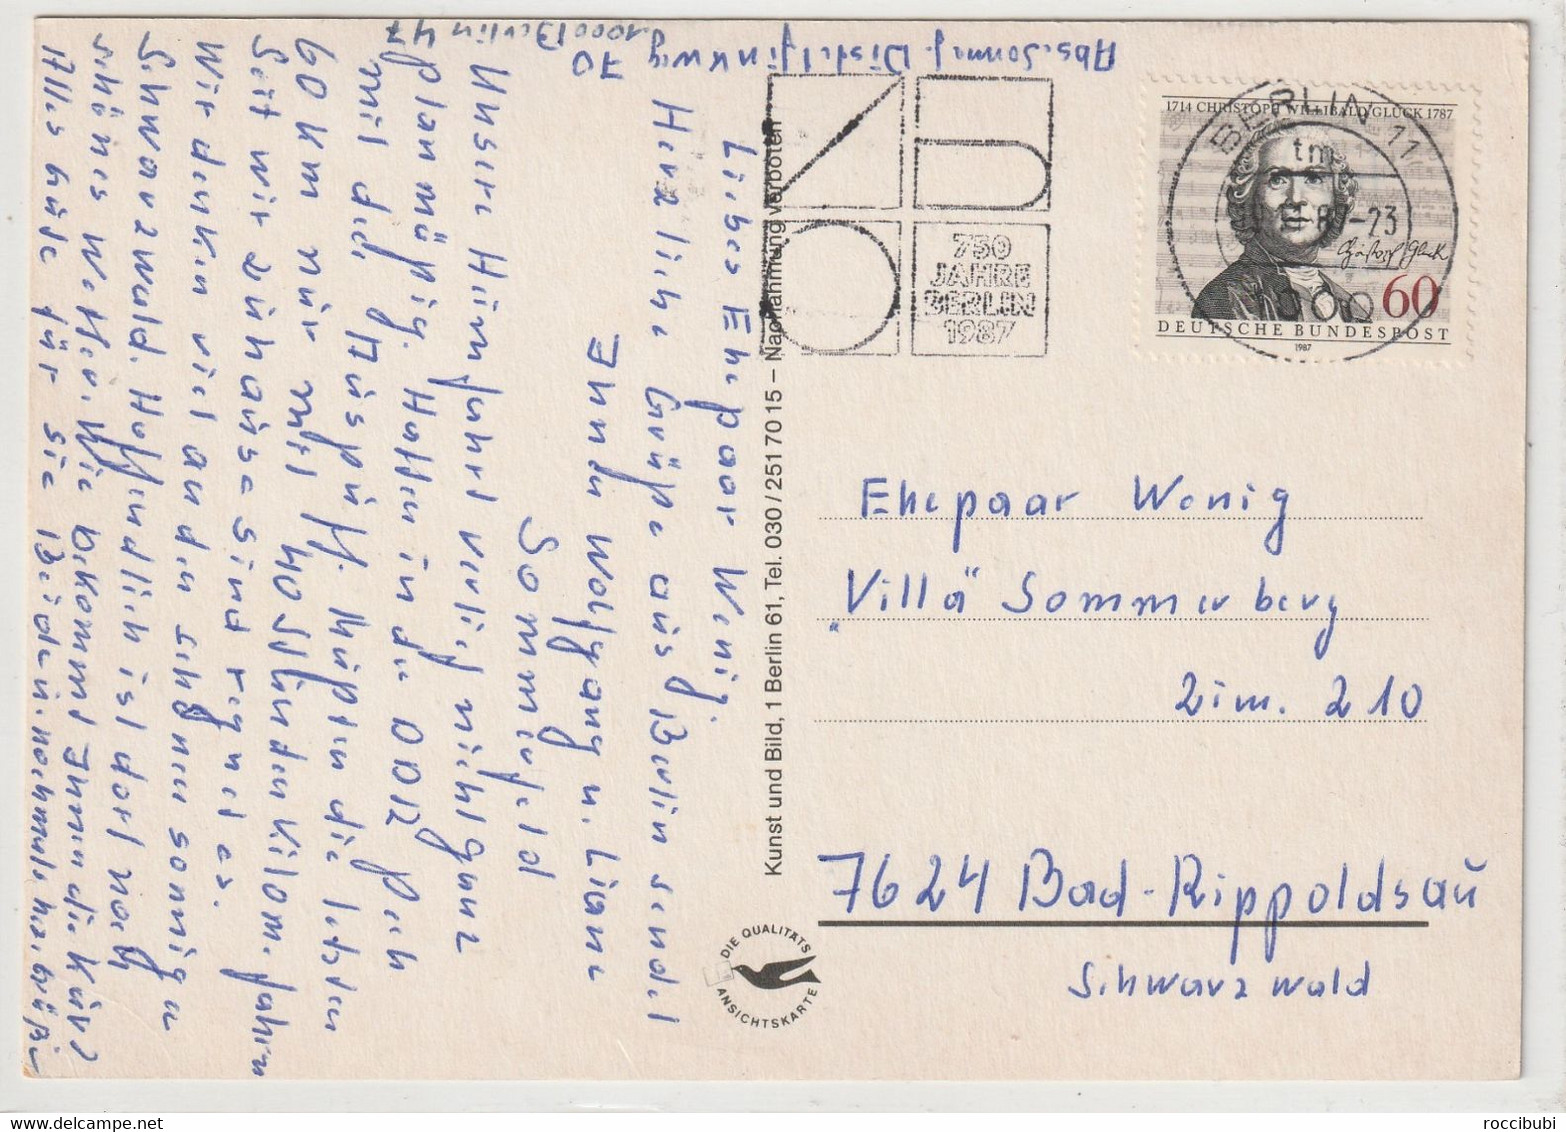 Abs. Sommerf. Distelfinkweg 70
1000 Berlin 47
Liebes Ehepaar Wenig.
Herzliche Grüße aus Berlin sendet
Ihnen Wolfgang u. Liane
Sommerfeld
Unsere Heimfahrt verlief nicht ganz
planmäßig. Hatten in der DDR Pech
mit dem Auspuff. Mußten die letzten
60 km nur mit 40 Stundenkilom. fahren
Seit wir zuhause sind regnet es.
Wir denken viel an den schönen sonnigen
Schwarzwald. Hoffendlich ist dort noch
schönes Wetter. Wie bekommt Ihnen die Kur?
Alles Gute für Sie Beiden. nochmals herz. Grüße
Kunst und Bild, 1 Berlin 61, Tel. 030 / 251 70 15 – Nachahmung verboten
DIE QUALITÄTS
ANSICHTSKARTE
750
JAHRE
BERLIN
1987
BERLIN 11
tm
-23
1000
1714 CHRISTOPH WILLIBALD GLUCK 1787
Christoph Gluck
60
DEUTSCHE BUNDESPOST
1987
Ehepaar Wenig
„Villa" Sommerberg
Zim. 210
7624 Bad-Rippoldsau
Schwarzwald
roccibubi